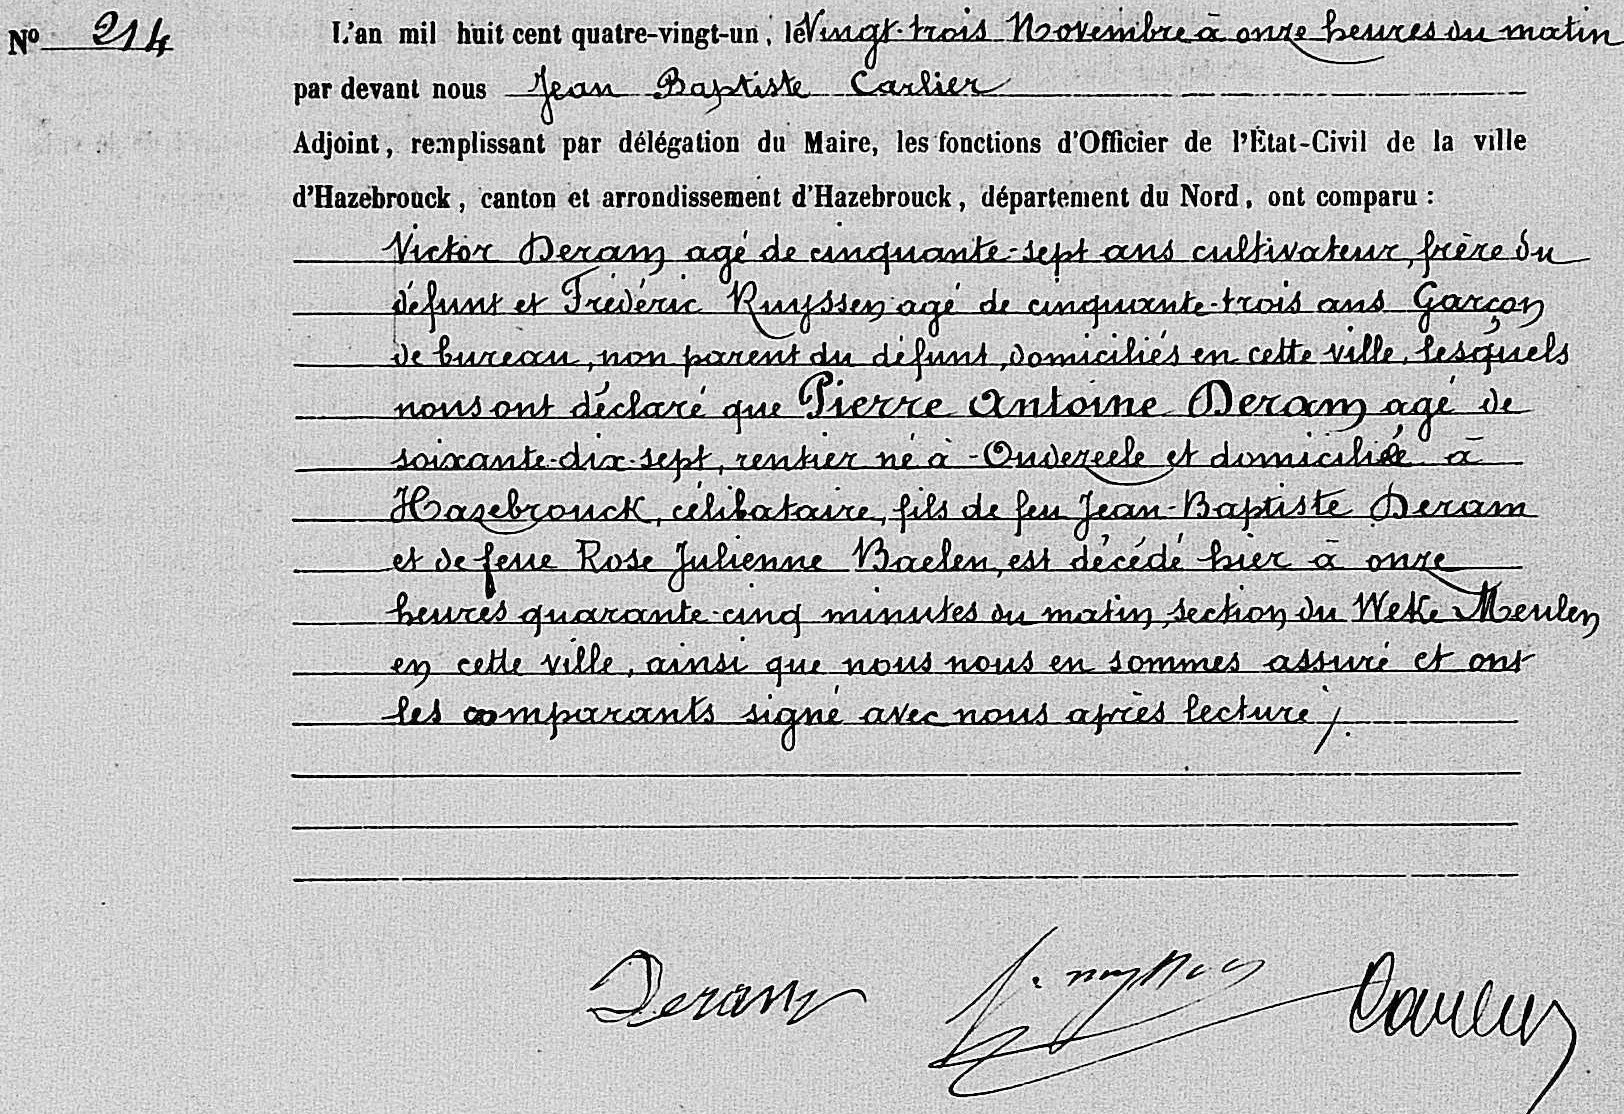 N° 214
L'an mil huit cent quatre-vingt-un, le Vingt-trois Novembre à onze heures du matin
par devant nous Jean Baptiste Carlier
Adjoint, remplissant par délégation du Maire, les fonctions d'Officier de l'État-Civil de la ville
d'Hazebrouck, canton et arrondissement d'Hazebrouck, département du Nord, ont comparu :
Victor Deram agé de cinquante-sept ans cultivateur, frère du
défunt et Frédéric Ruyssen agé de cinquante-trois ans Garçon
de bureau, non parent du défunt, domiciliés en cette ville, lesquels
nous ont déclaré que Pierre Antoine Deram agé de
soixante-dix-sept, rentier né à Oudezeele et domiciliée à
Hazebrouck, célibataire, fils de feu Jean-Baptiste Deram
et de feue Rose Julienne Baelen, est décédé hier à onze
heures quarante-cinq minutes du matin, section du Weke Meulen
en cette ville, ainsi que nous nous en sommes assuré et ont
les comparants signé avec nous après lecture ;.
Deram Carlier